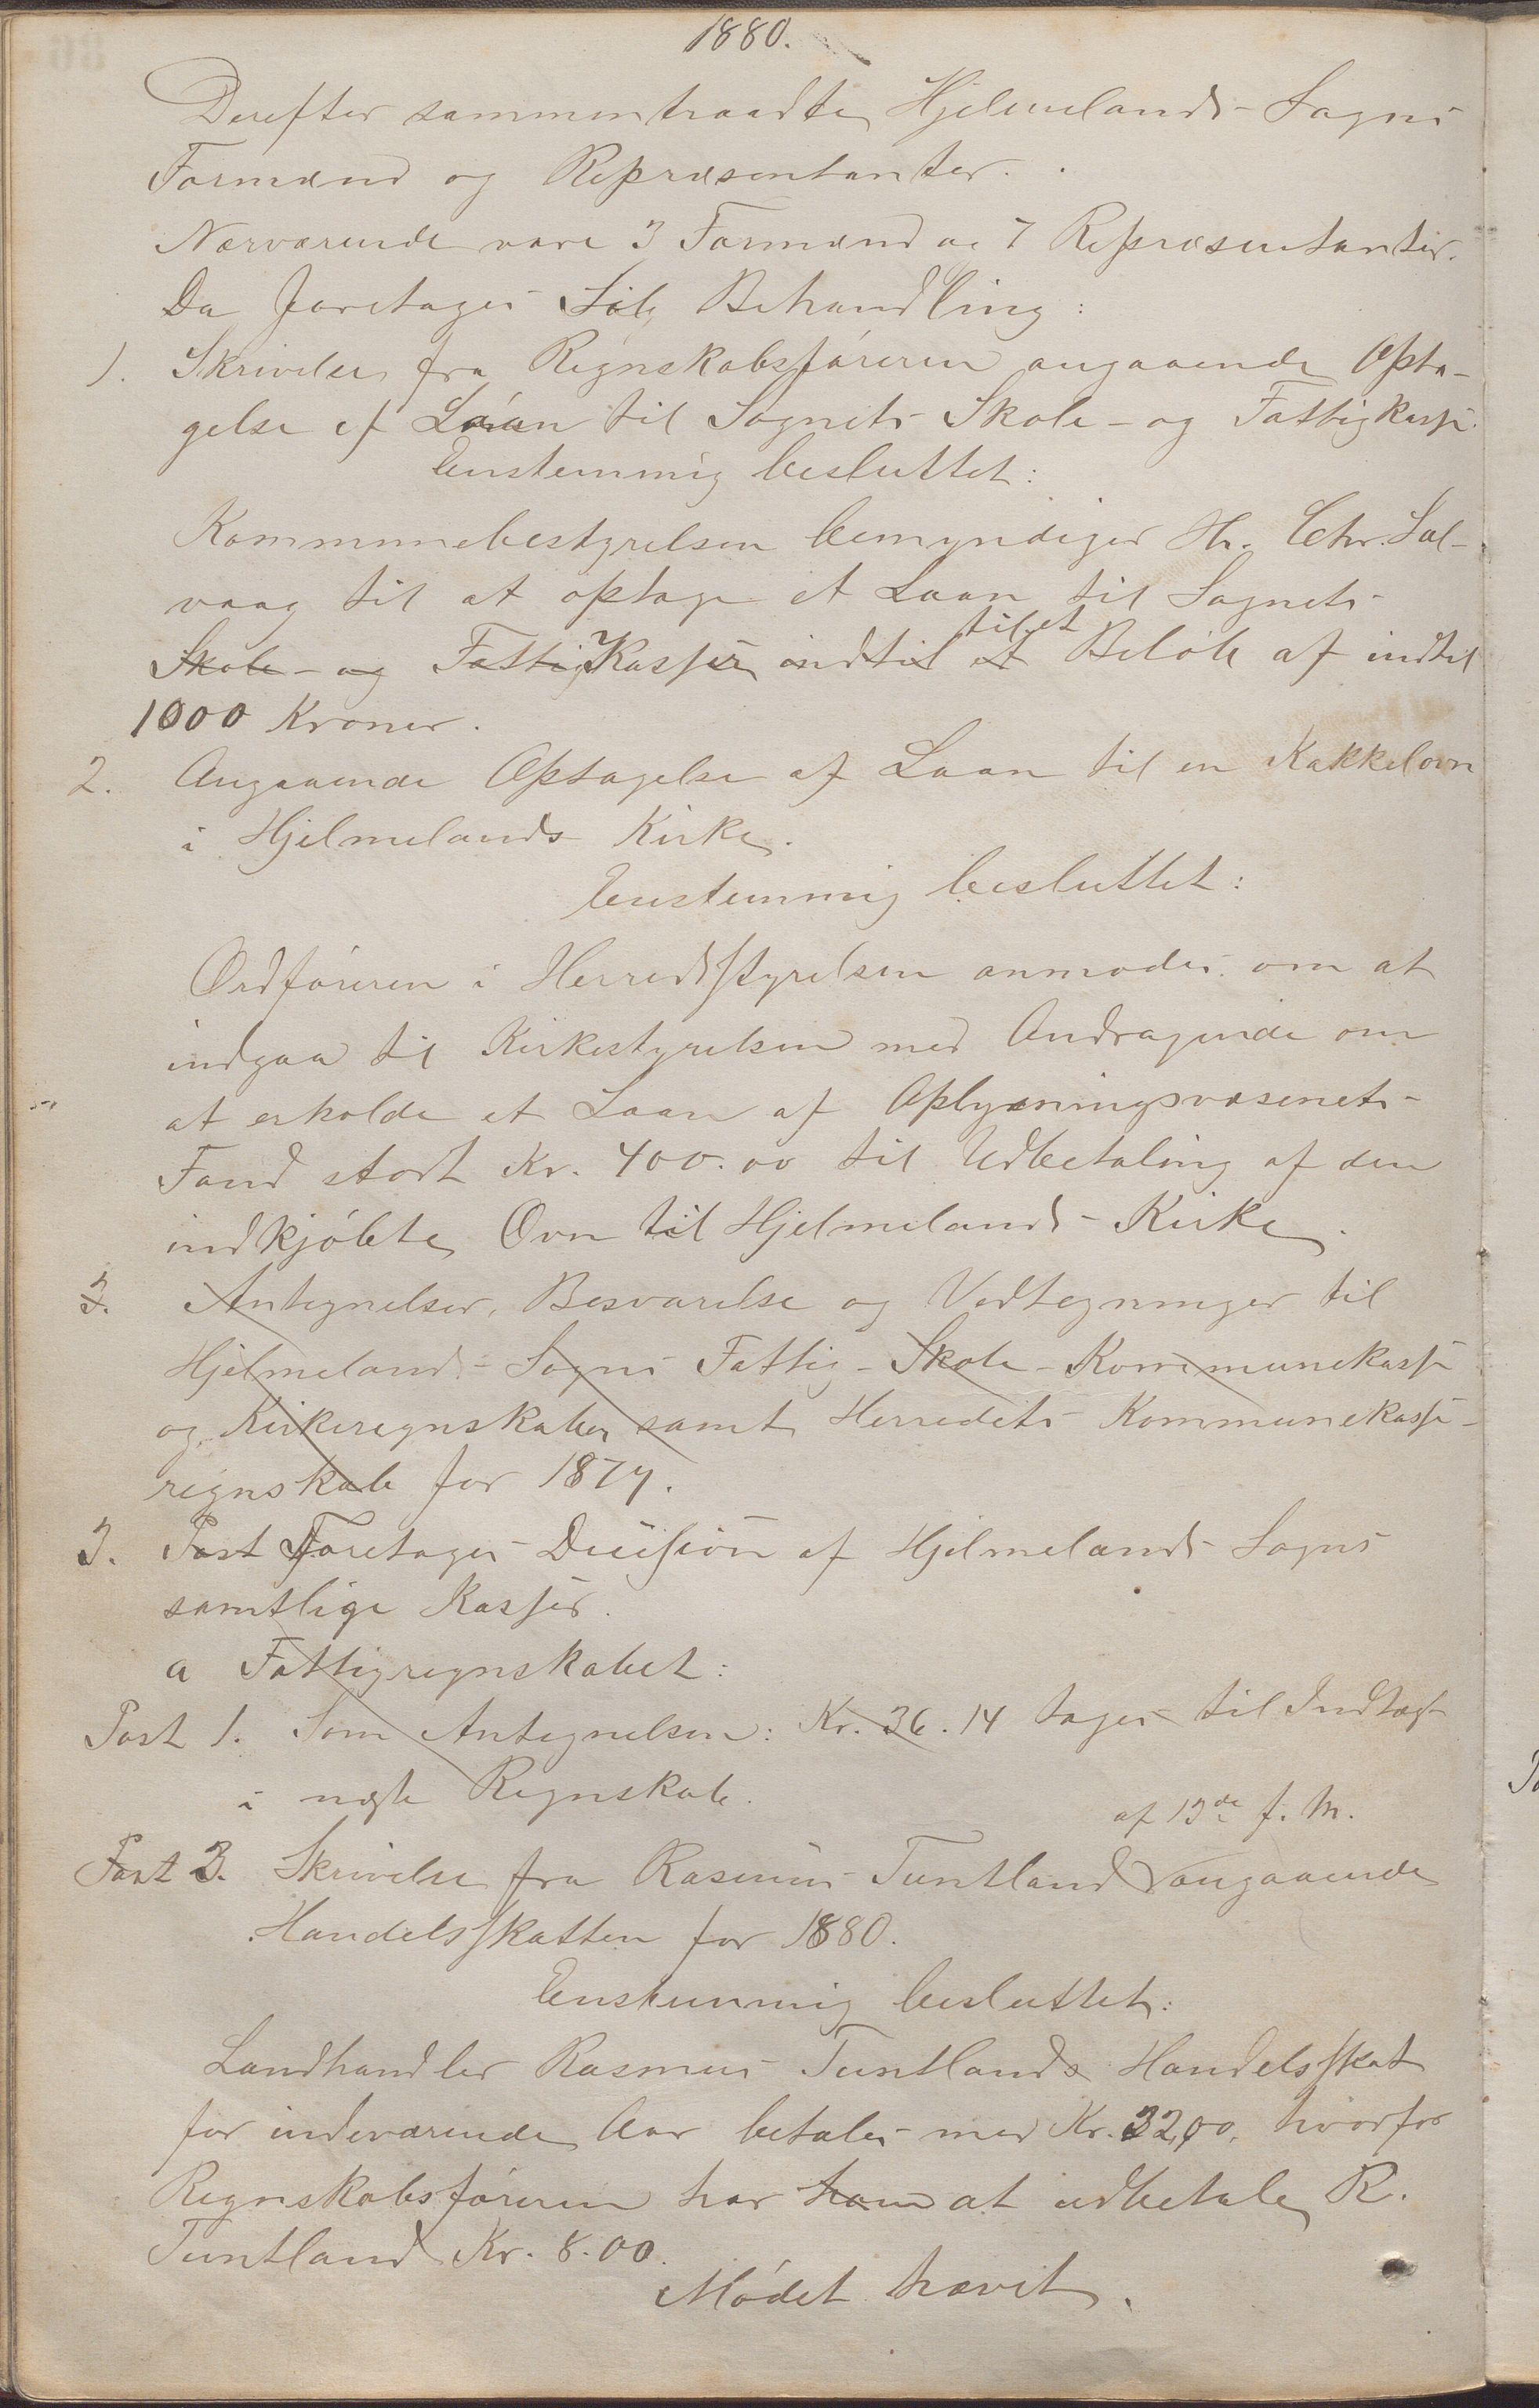 1880.
Derefter sammentraadte Hjelmelands Sogns
Formænd og Repræsentanter.
Nærværende vare 3 Formænd og 7 Repræsentanter.
Da foretages til Behandling:
1. Skrivelse fra Regnskabsføreren angaaende Opta-
gelse af Laan til Sognets Skole- og Fattigkasse.
Enstemmig besluttet:
Kommunebestyrelsen bemyndiger Hr. Chr. Sal-
vaag til at optage et Laan til Sognets
til et
Skole- og Fattig Kasser indtil et Beløb af indtil
1000 Kroner.
2. Angaaende Optagelse af Laan til en Kakkelovn
i Hjelmelands Kirke.
Enstemmig besluttet:
Ordføreren i Herredsstyrelsen anmodes om at
indgaa til Kirkestyrelsen med Andragende om
at erholde et Laan af Oplysningsvæsenets
Fond stort Kr. 400.00 til Udbetaling af den
indkjøbte Ovn til Hjelmelands Kirke.
3. Antegnelser, Besvarelse og Vedtegninger til
Hjelmelands Sogns Fattig- Skole- Kommunekasse
og Kirkeregnskaber samt Herredets Kommunekasse-
regnskab for 1879.
3. Post Foretages Decision af Hjelmelands Sogns
samtlige Kasser.
a Fattigregnskabet:
Post 1. Som Antegnelsen: Kr. 36.14 tages til Indtægt
i næste Regnskab.
af 13de f. M.
Post 3. Skrivelse fra Rasmus Tuntland angaaende
Handelsskatten for 1880.
Enstemmig besluttet:
Landhandler Rasmus Tuntlands Handelsskat
for indeværende Aar betales med Kr. 32,00, hvorfor
Regnskabsføreren har ham at udbetale R.
Tuntland Kr. 8.00.
Mødet hævet.